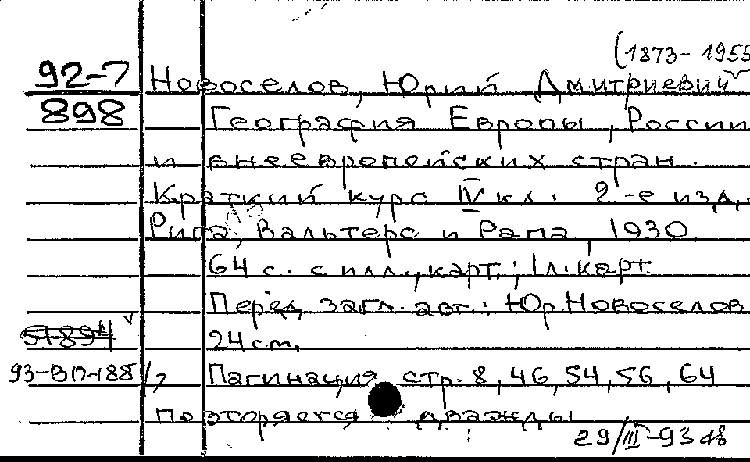 (1873-1955
92-7 Новоселов, Юрий Дмитриевич
898 География Европы, России
и внеевропейских стран.
Краткий курс IV кл. 2-е изд.
Рига, Вальтерс и Рапа, 1930
64 с. с илл., карт.; 1 л. карт
Перед загл. авт.: Юр. Новоселов
24 cm.
93-ВП-188/7 Пагинация стр. 8, 46, 54, 56, 64
повторяется дважды
29/III-93